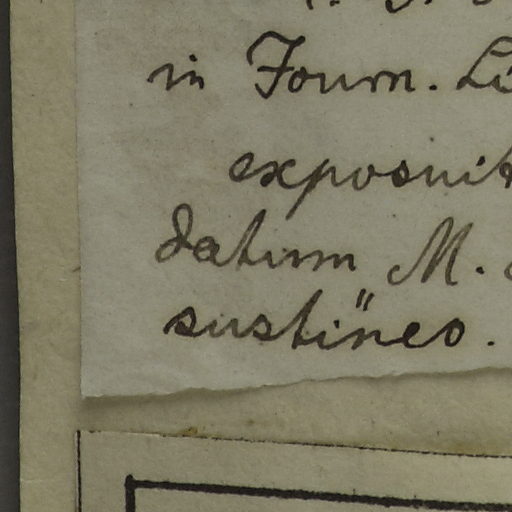 in Journ. Li
exposuit
datum M.
sustineo.